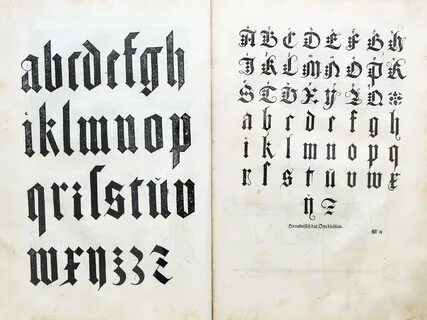 abcdefgh
iklmnop
qriſstuv
wxyzzz
A B C D E F G H
I K L M N O P R
S T V X Y
a b c d e f g h
i k l m n o p q
r ſ s t u v w x
ÿ z
M ii